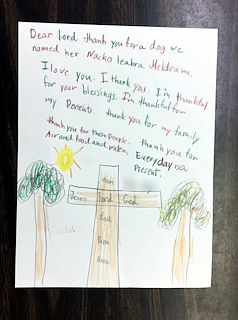 Dear lord thank you for a dog we
named her Nacho leabra Meldrum,
I love you. I thank you. I'm thankful
for your blessings. I'm thankful for
my Perents. thank you for my family
thank you for these People. thank you for
Air and food and water. Every day is a
Present.
Jesus lord God